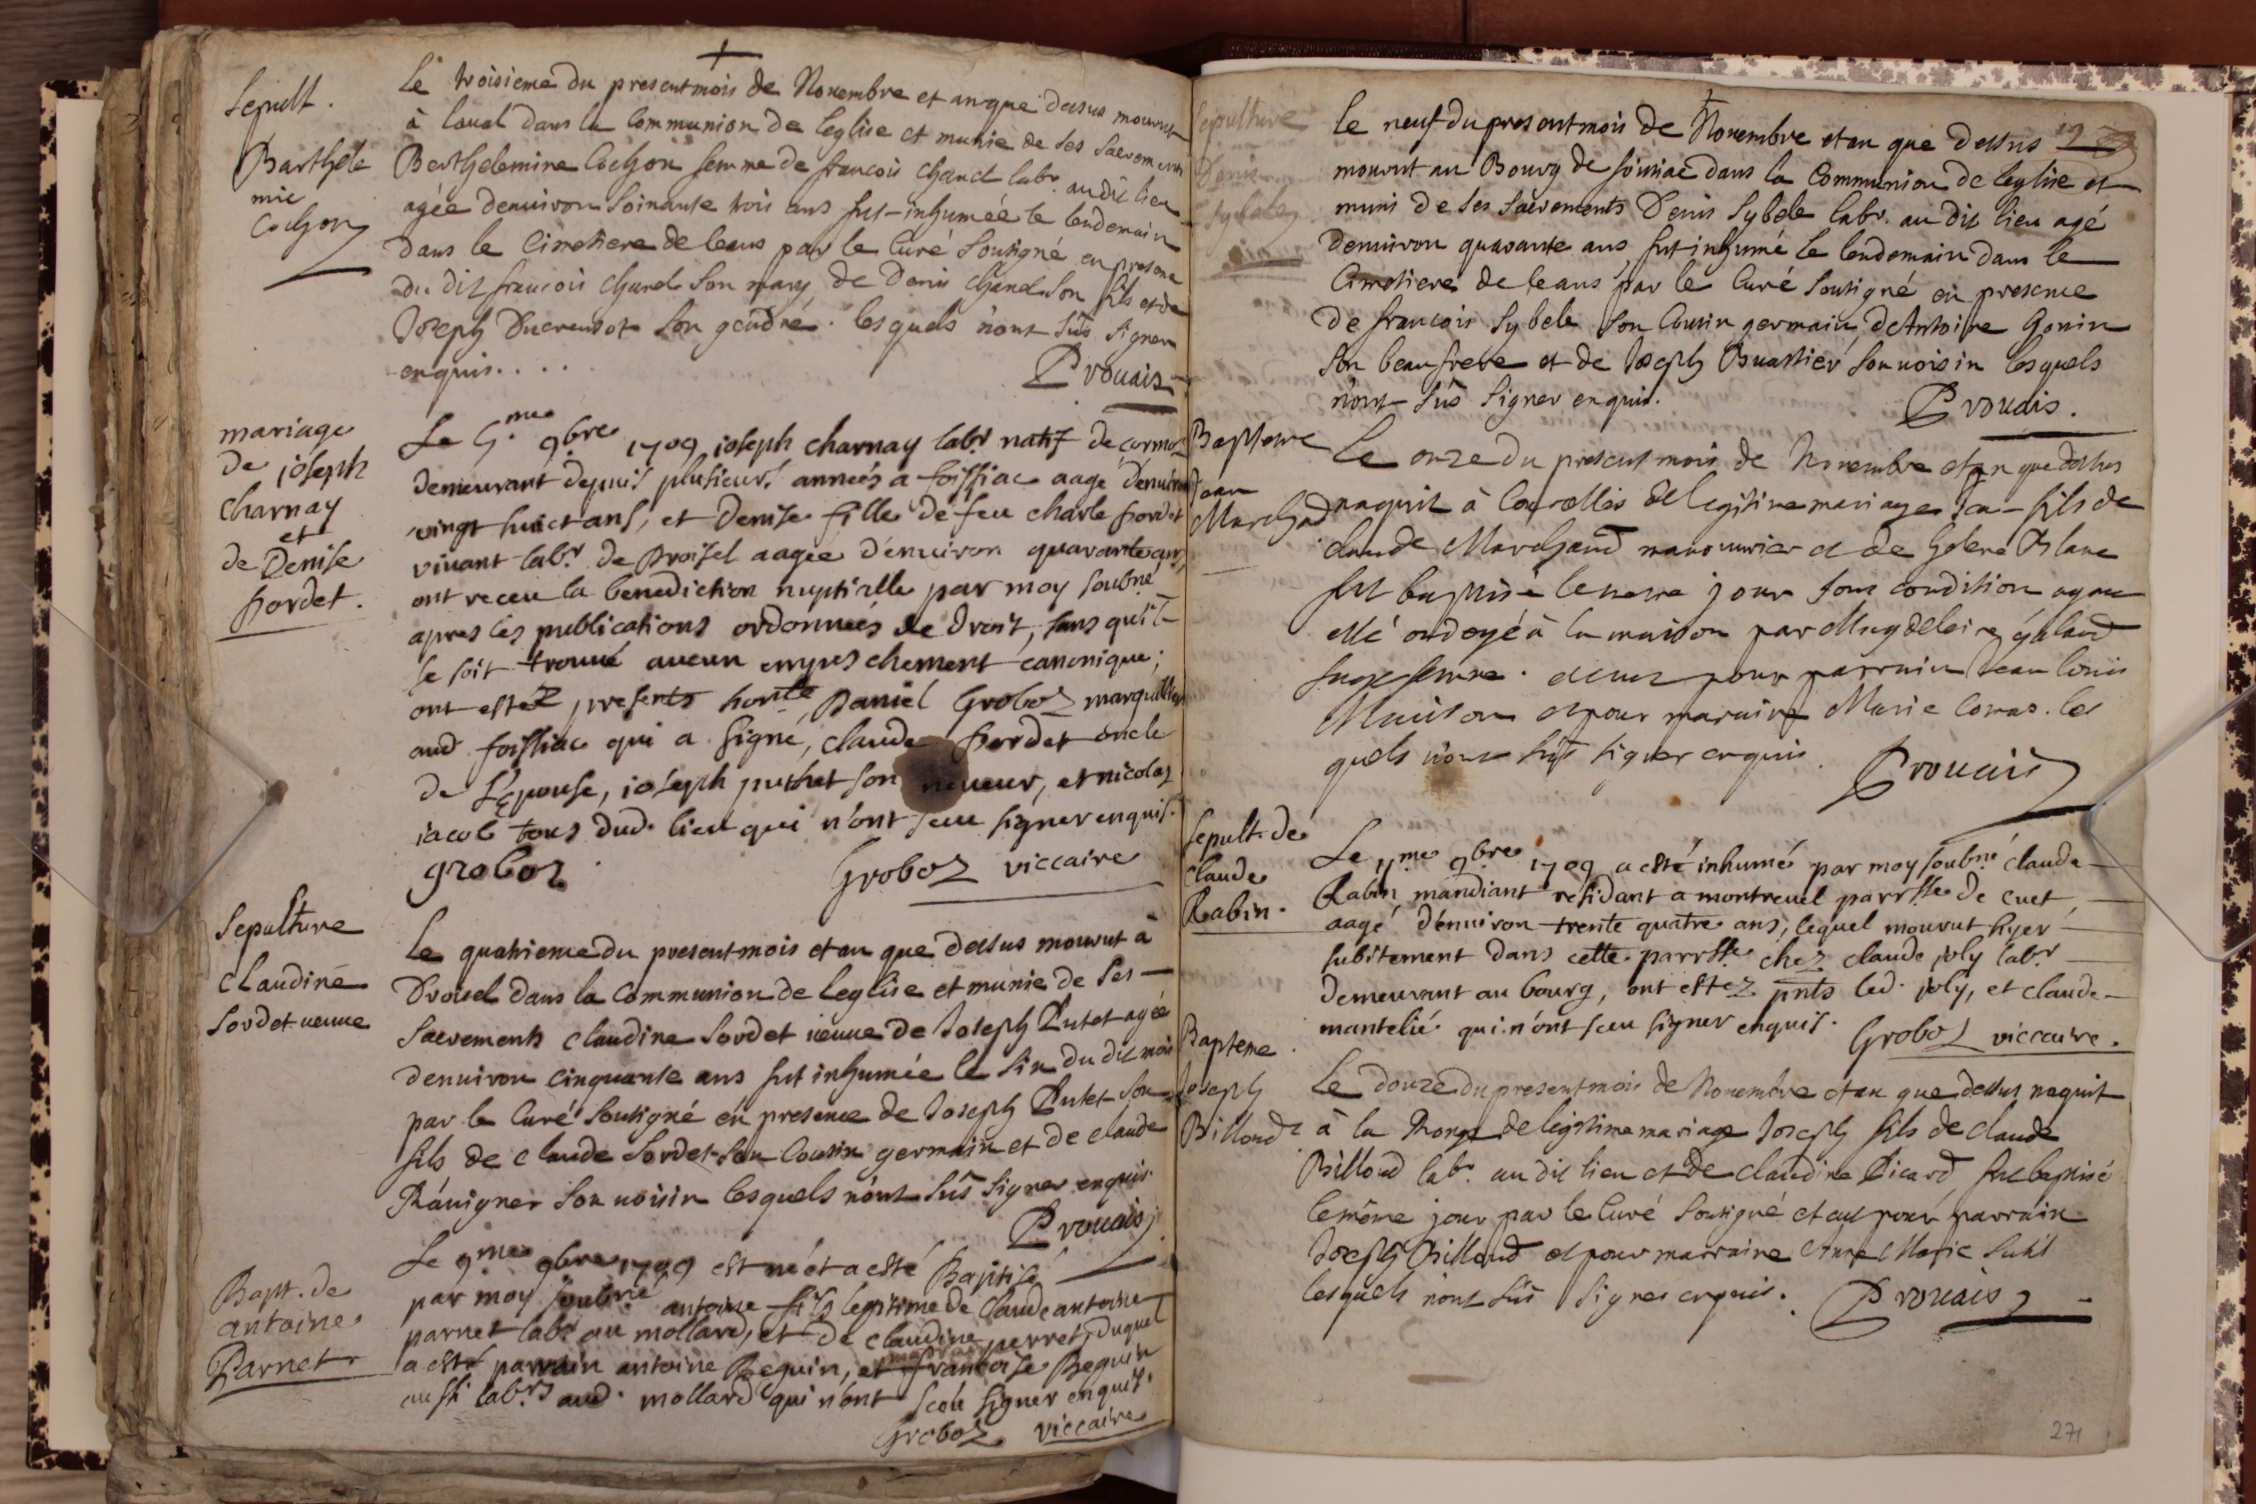 Sepult.
Barthele
mie
Cochon
Le troisieme du present mois de Novembre et an que dessus mourut
à laval dans la Communion de leglise et munie de ses Sacremens
Berthelemine Cochon femme de francois Chanel labr. audit lieu
agée denuiron soinante trois ans fut inhumée le lendemain
dans le Cimetiere de ceans par le Curé Sousigné en presence
du dit francois Chanel son mary, de Denis Chanel son fils et de
Joseph Ducreusot son gendre. lesquels n'ont sus signer
enquis. . . .
Provais
mariage
de joseph
Charnay
et
de Denise
Pordet.
Le 5.me 9bre 1709 joseph charnay labr. natif de cormoz
demeurant depuis plusieurs années a foissiac aagé d'enuiron
vingt huict ans, et Denise fille de feu charle Pordet
viuant labr. de Droisel aagée d'enuiron quarante ans,
ont receu la benediction nuptialle par moy soubné
apres les publications ordonnées de droit, sans qu'il
se soit trouué aucun empeschement canonique;
ont estéz presents honte. Daniel Groboz marguillier
aud. foissiac qui a signé, claude Pordet oncle
de L'épouse, joseph puthet son neueur, et nicolas
jacob tous dud. lieu qui n'ont sceu signer enquis.
groboz.
Groboz viccaire
Sepulture
Claudine
Sordet ueuue
Le quatrieme du present mois et an que dessus mourut à
Droisel dans la Communion de leglise et munie de ses
Sacrements Claudine Sordet ueuue de Joseph Putet agée
denuiron cinquante ans fut inhumée le sin du dit mois
par le Curé Sousigné en presence de Joseph Putet son
fils de Claude Sordet son Cousin germain et de claude
Rauigner son uoisin lesquels n'ont sus signer enquis
Provais
Bapt. de
antoine
Parnet
Le 9.me 9bre 1709 est né et a esté Baptisé
par moy soubné antoine fils legitime de Claude antoine
parnet labr. au mollard, et de claudine perret, duquel
a esté parrain antoine Beguin, et marraine francoise Beguin
aussi labrs. aud. mollard qui n'ont sceu signer enquis.
Groboz viccaire
Sepulture
Denis
Sybele
Le neuf du present mois de Novembre et an que dessus
mourut au Bourg de foissiac dans la Communion de leglise et
munis de ses sacrements Denis Sybele labr. au dit lieu agé
denuiron quarante ans, fut inhumé le lendemain dans le
Cimetiere de ceans par le Curé Soussigné en presence
de francois Sybele son Cousin germain dAntoine Gonin
son beau frere et de Joseph Buattier son uoisin lesquels
n'ont sus signer enquis.
Provais.
Bapteme
Jean
Marchand
Le onze du present mois de Novembre et an que dessus
naquit à Courcelles de legitime mariage Jean fils de
claude Marchand manouurier et de helene Blanc
fut baptisé le meme jour sous condition ayant
esté ondoyé à la maison par Magdeleine galand
sage femme. et eut pour parrain Jean louis
Maison et pour maraine Marie Comas. les
quels n'ont sus signer enquis.
Provais
Sepult. de
Claude
Rabin.
Le 11.me 9bre 1709 a esté inhumé par moy soubné claude
Rabin mandiant residant a montreuel parrsse de cuet,
aagé d'enuiron trente quatre ans, lequel mourut hyer
subitement dans cette parrsse chez claude joly labr.
demeurant au bourg, ont estez pnts led. joly, et claude
mantelié qui n'ont sceu signer enquis.
Groboz viccaire.
Bapteme
Joseph
Billoud
Le douze du present mois de Novembre et an que dessus naquit
à la Ronge de legitime mariage Joseph fils de claude
Billoud labr. au dit lieu et de Claudine Picard, fut baptisé
le même jour par le Curé Soussigné et eut pour parrain
Joseph Billoud et pour marraine Anne Marie
lesquels n'ont sus signer enquis.
Provais
271